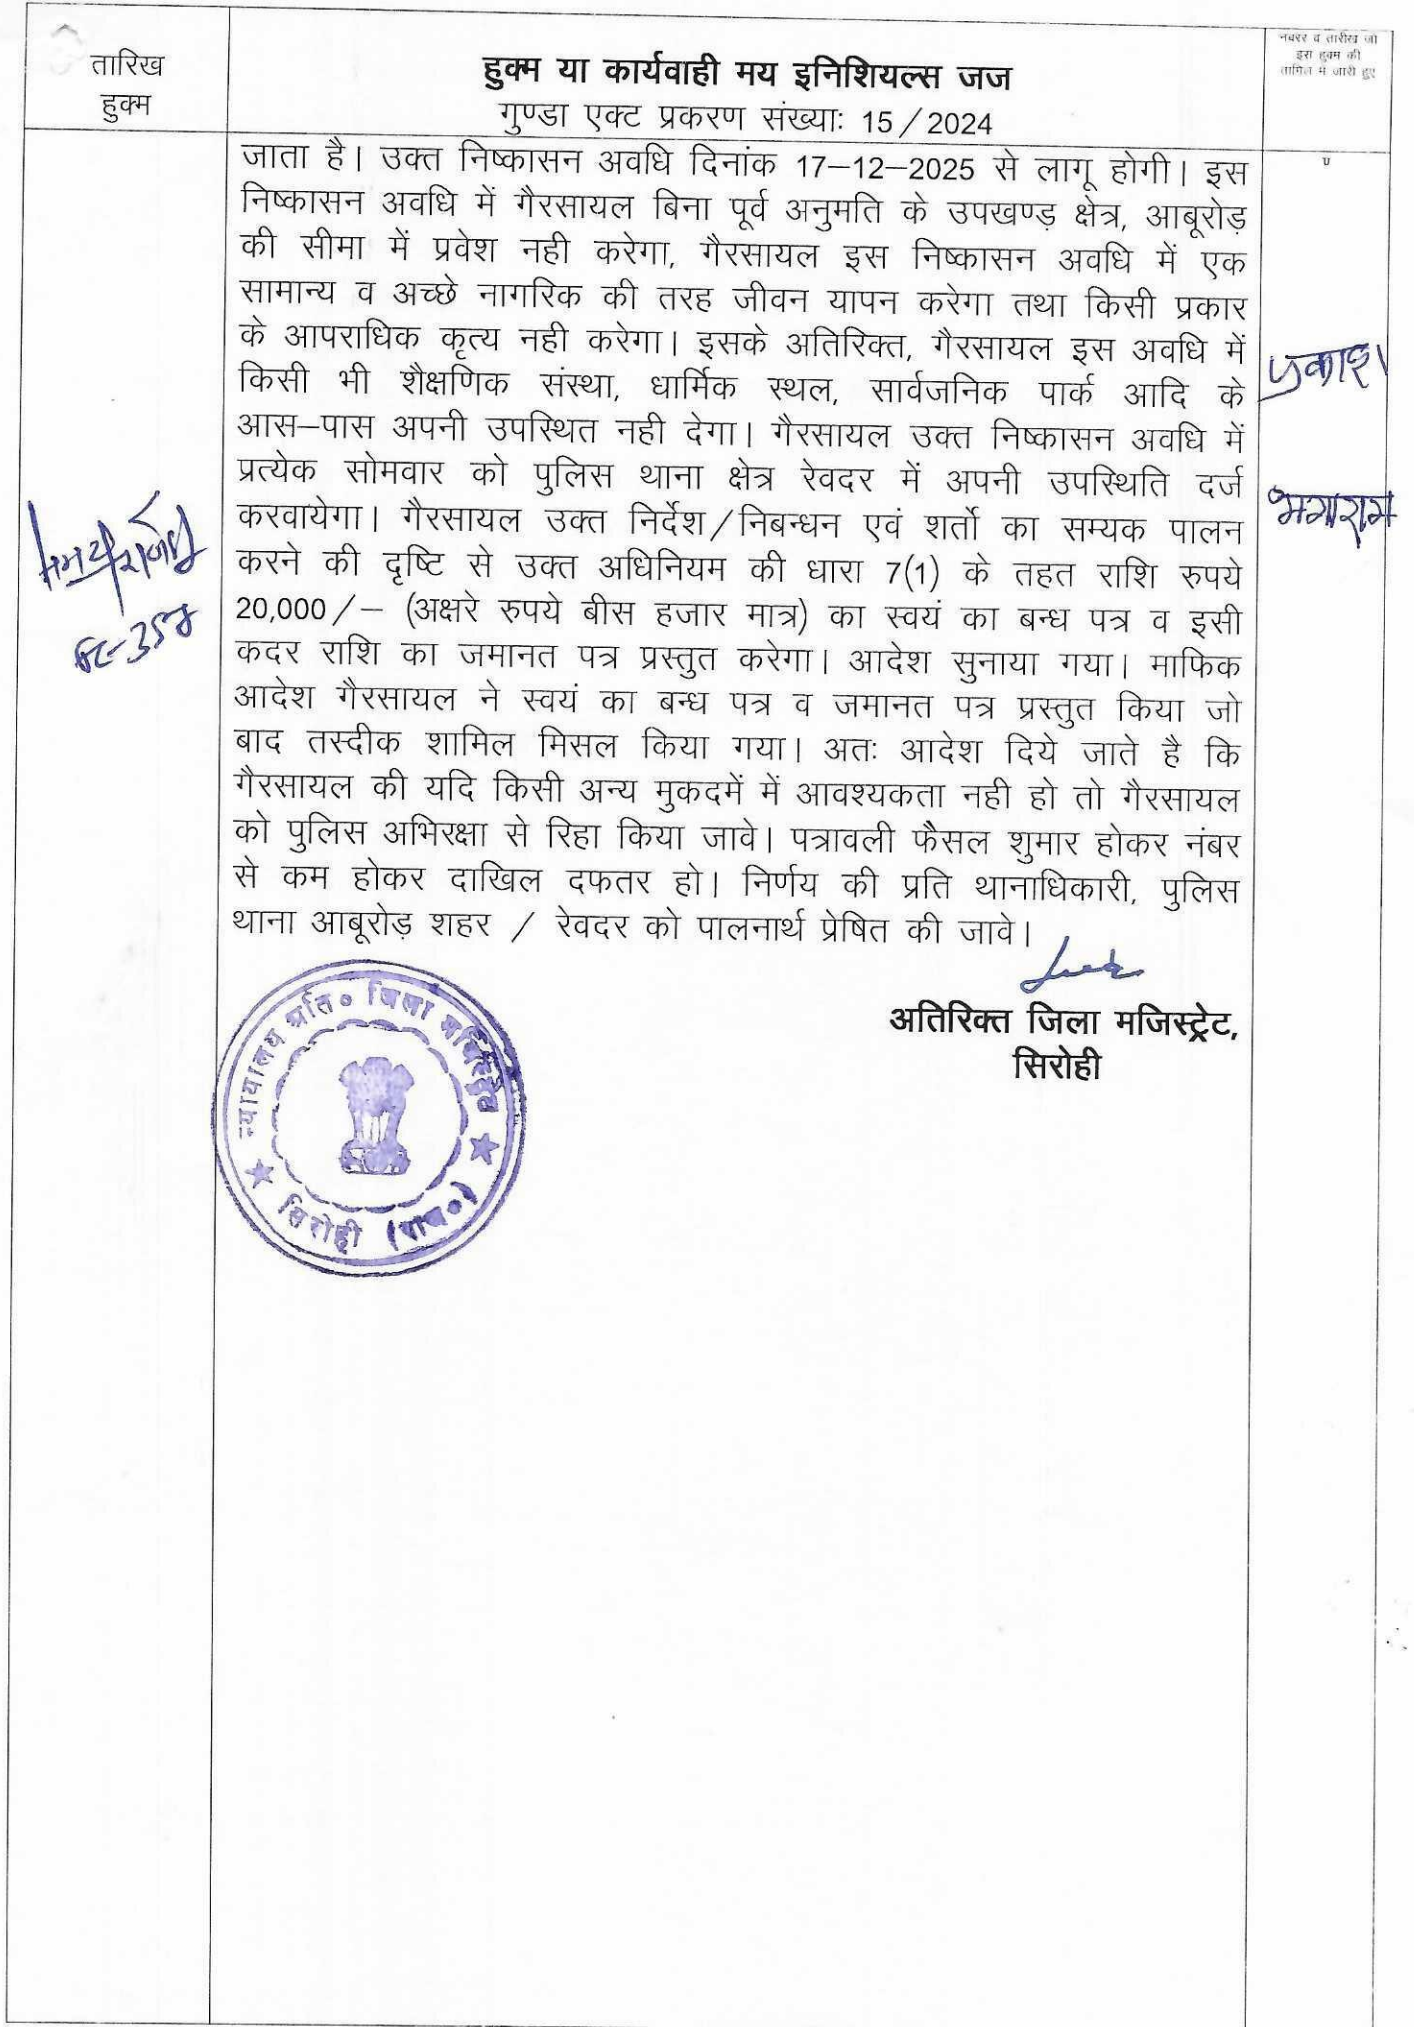 तारिख
हुक्म
हुक्म या कार्यवाही मय इनिशियल्स जज
गुण्डा एक्ट प्रकरण संख्याः 15/2024
नबरर व तारीख जो
इस हुक्म की
तामिल में जारी हुए
जाता है। उक्त निष्कासन अवधि दिनांक 17–12–2025 से लागू होगी। इस
निष्कासन अवधि में गैरसायल बिना पूर्व अनुमति के उपखण्ड़ क्षेत्र, आबूरोड़
की सीमा में प्रवेश नही करेगा, गैरसायल इस निष्कासन अवधि में एक
सामान्य व अच्छे नागरिक की तरह जीवन यापन करेगा तथा किसी प्रकार
के आपराधिक कृत्य नही करेगा। इसके अतिरिक्त, गैरसायल इस अवधि में
किसी भी शैक्षणिक संस्था, धार्मिक स्थल, सार्वजनिक पार्क आदि के
आस–पास अपनी उपस्थित नही देगा। गैरसायल उक्त निष्कासन अवधि में
प्रत्येक सोमवार को पुलिस थाना क्षेत्र रेवदर में अपनी उपस्थिति दर्ज
करवायेगा। गैरसायल उक्त निर्देश/निबन्धन एवं शर्तो का सम्यक पालन
करने की दृष्टि से उक्त अधिनियम की धारा 7(1) के तहत राशि रुपये
20,000/– (अक्षरे रुपये बीस हजार मात्र) का स्वयं का बन्ध पत्र व इसी
कदर राशि का जमानत पत्र प्रस्तुत करेगा। आदेश सुनाया गया। माफिक
आदेश गैरसायल ने स्वयं का बन्ध पत्र व जमानत पत्र प्रस्तुत किया जो
बाद तस्दीक शामिल मिसल किया गया। अतः आदेश दिये जाते है कि
गैरसायल की यदि किसी अन्य मुकदमें में आवश्यकता नही हो तो गैरसायल
को पुलिस अभिरक्षा से रिहा किया जावे। पत्रावली फैसल शुमार होकर नंबर
से कम होकर दाखिल दफतर हो। निर्णय की प्रति थानाधिकारी, पुलिस
थाना आबूरोड़ शहर / रेवदर को पालनार्थ प्रेषित की जावे।
प्रकाश
भगाराम
अतिरिक्त जिला मजिस्ट्रेट,
सिरोही
न्यायालय प्रति० जिला मजिस्ट्रेट
सिरोही (राज०)